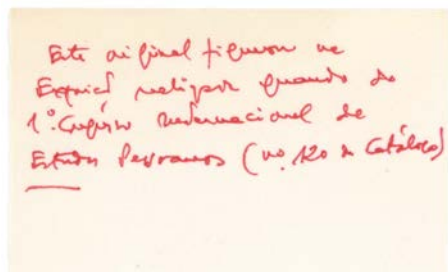 Este original figurou na
Exposição realizada quando do
1º. Congresso Internacional de
Estudos Pessoanos (no. 120 do Catálogo)